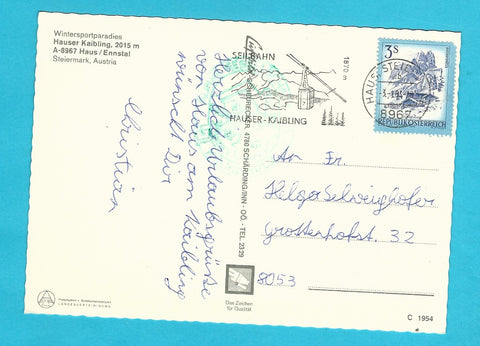 Wintersportparadies
Hauser Kaibling, 2015 m
A-8967 Haus / Ennstal
Steiermark, Austria
Herzliche Urlaubsgrüße
von Haus am Kaibling
wünscht Dir
Christian
4780 SCHÄRDING/INN - OÖ. - TEL. 2329
SEILBAHN
1870 m
HAUSER-KAIBLING
HAUS, STEIERM
8967
3 S
REPUBLIK ÖSTERREICH
An Fr.
Helga Schweighofer
Grottenhofstr. 32
8053
Das Zeichen
für Qualität
C 1954